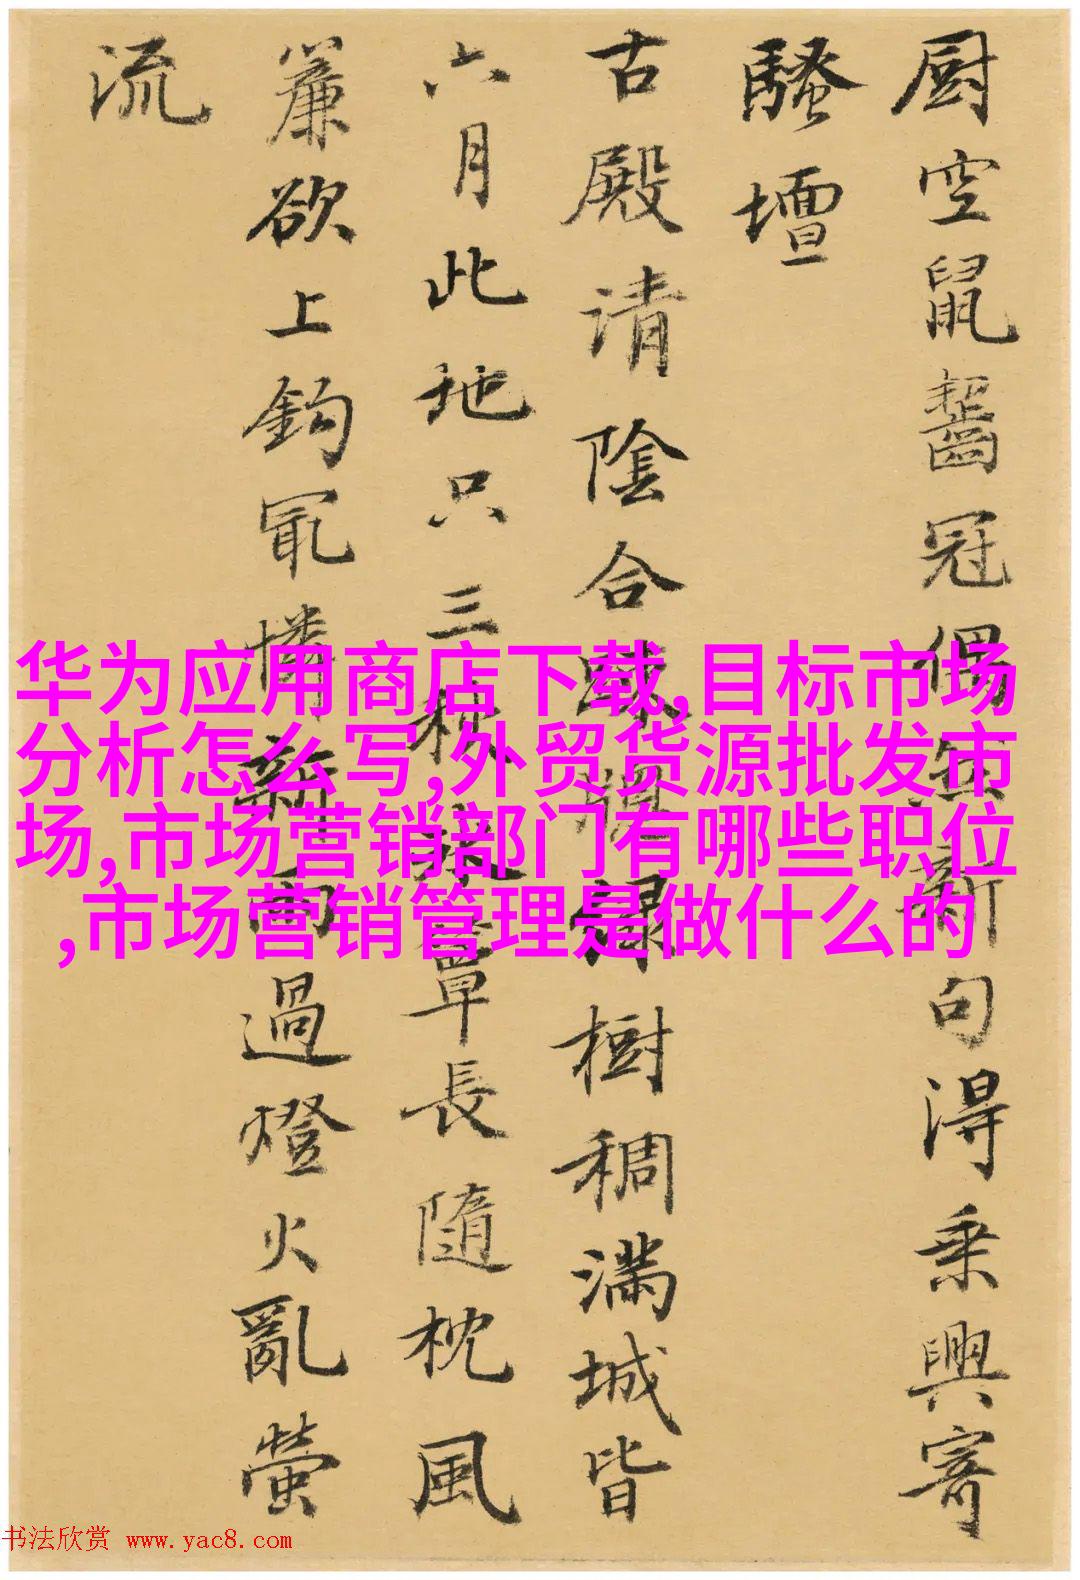 厨空鼠齧冠偶無新句得乘興寄
騷壇
古殿清陰合牕緑樹稠满城皆
六月此地只三秋簟長隨枕風
簾欲上鈎冣憐新雨過燈火亂螢
流
华为应用商店下载,目标市场
分析怎么写,外贸货源批发市
场,市场营销部门有哪些职位
,市场营销管理是做什么的
书法欣赏 www.yac8.com